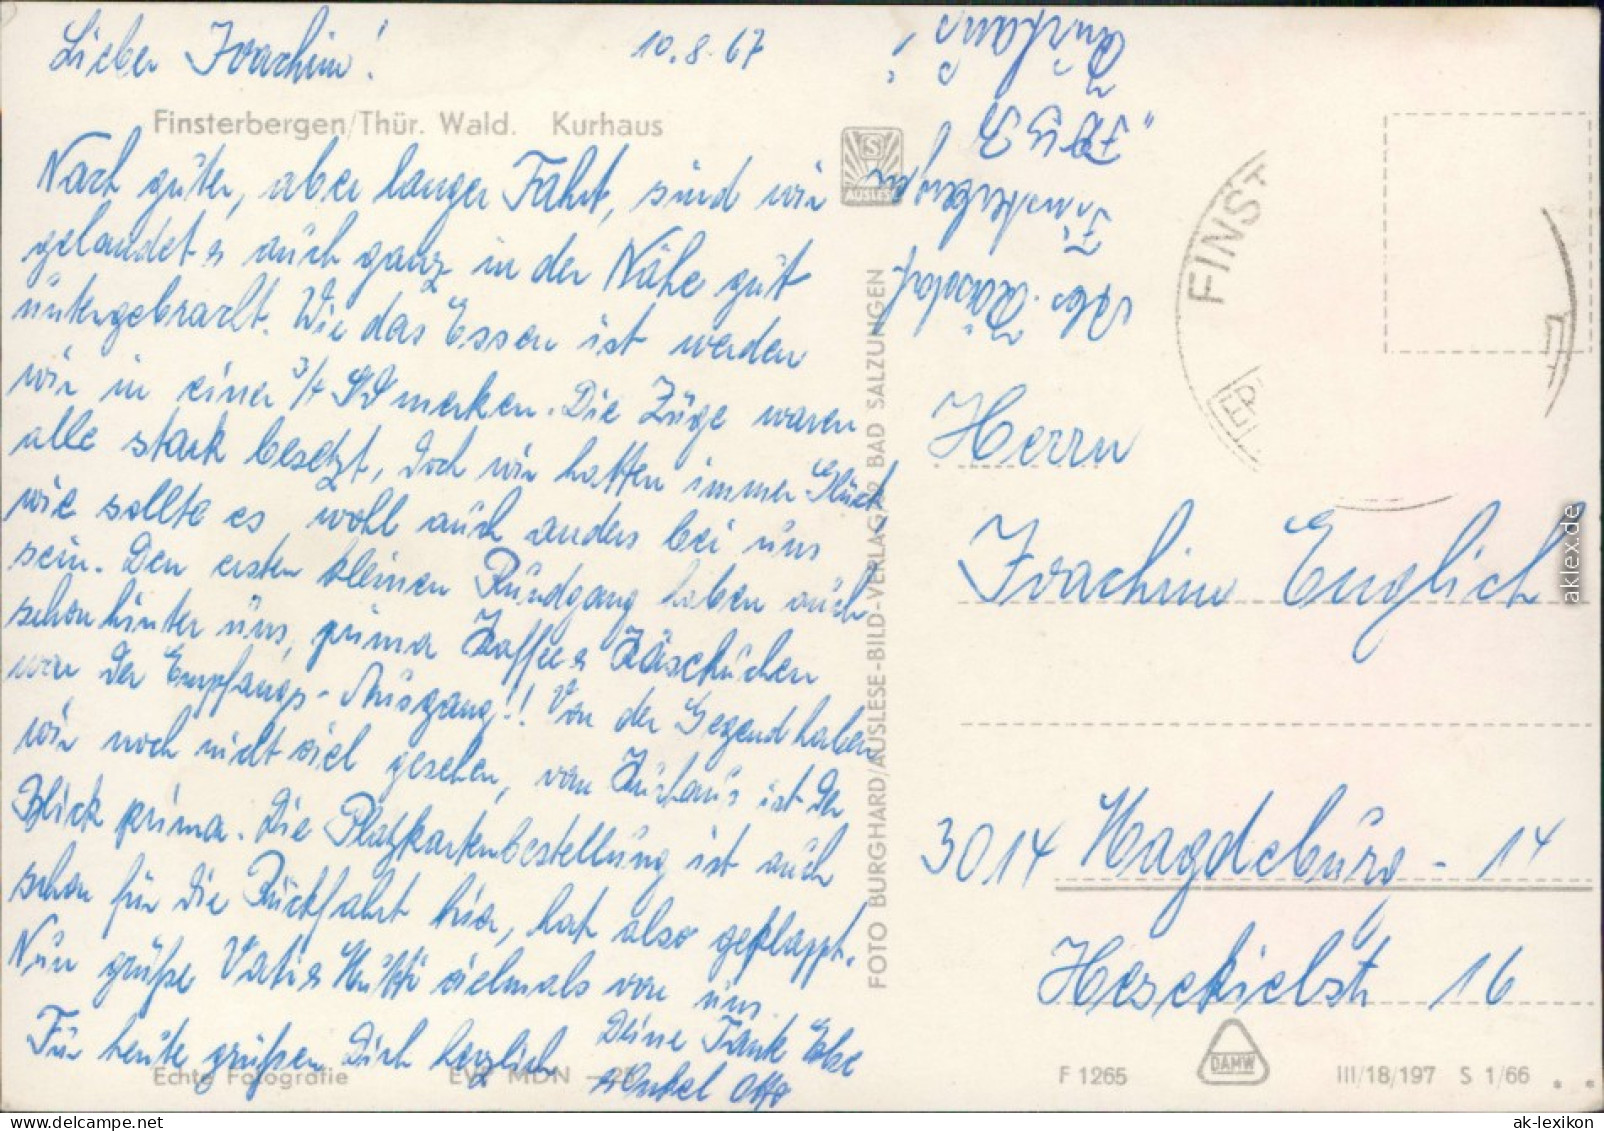 Lieber Joachim!
10.8.67
Finsterbergen/Thür. Wald. Kurhaus
Nach guter, aber langer Fahrt, sind wir
gelandet u auch ganz in der Nähe gut
untergebracht. Wie das Essen ist werden
wir in einer 3/4 Std merken. Die Züge waren
alle stark besetzt, doch wir hatten immer Glück
wie sollte es wohl auch anders bei uns
sein. Den ersten kleinen Rundgang haben auch
schon hinter uns, prima Kaffee u Käsekuchen
war der Empfangs-Ausgang!! Von der Gegend haben
wir noch nicht viel gesehen, vom Kurhaus ist der
Blick prima. Die Platzkartenbestellung ist auch
schon für die Rückfahrt hier, hat also geklappt.
Nun grüße Vati u Mutti vielmals von uns.
Für heute grüßen Dich herzlich
Deine Tante Else
u Onkel Otto
Echte Fotografie
EVP MDN
FOTO BURGHARD/AUSLESE-BILD-VERLAG BAD SALZUNGEN
S
AUSLESE
Finsterbergen
Kurhaus
FINST
Herrn
Joachim Englich
3014 Magdeburg-14
Hesekielstr 16
DAMW
F 1265
III/18/197 S 1/66
aklex.de
ak-lexikon